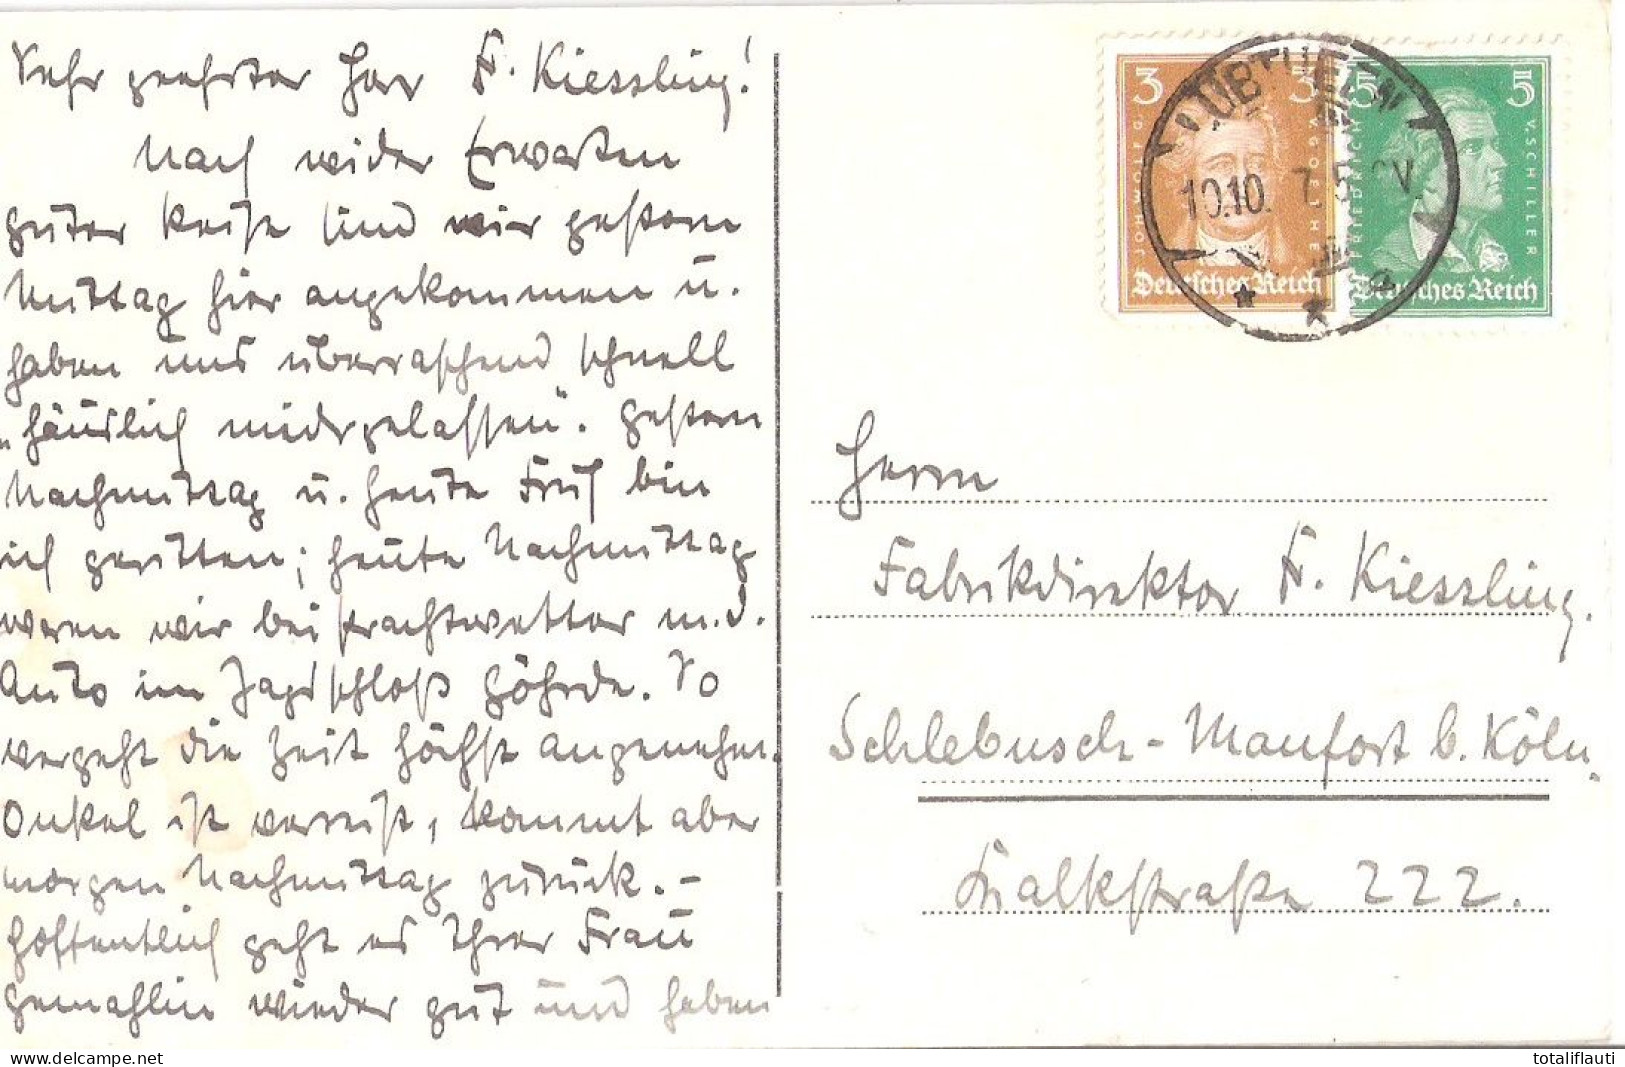 Sehr geehrter Herr F. Kiessling!
Nach wider Erwarten
guter Reise sind wir gestern
Mittag hier angekommen u.
haben uns überraschend schnell
„häuslich niedergelassen". Gestern
Nachmittag u. heute Früh bin
ich geritten; heute Nachmittag
waren wir bei Prachtwetter m. d.
Auto im Jagdschloß Göhrde. So
vergeht die Zeit höchst angenehm.
Onkel ist verreist, kommt aber
morgen Nachmittag zurück. –
Hoffentlich geht es Ihrer Frau
Gemahlin wieder gut und haben
3 3
JOH. WOLFG. V. GOETHE
Deutsches Reich
5 5
FRIEDRICH V. SCHILLER
Deutsches Reich
LÜBTHEEN
10.10. 7. 5 V
Herrn
Fabrikdirektor F. Kiessling.
Schlebusch-Manfort b. Köln.
Kalkstraße 222.
totaliflauti